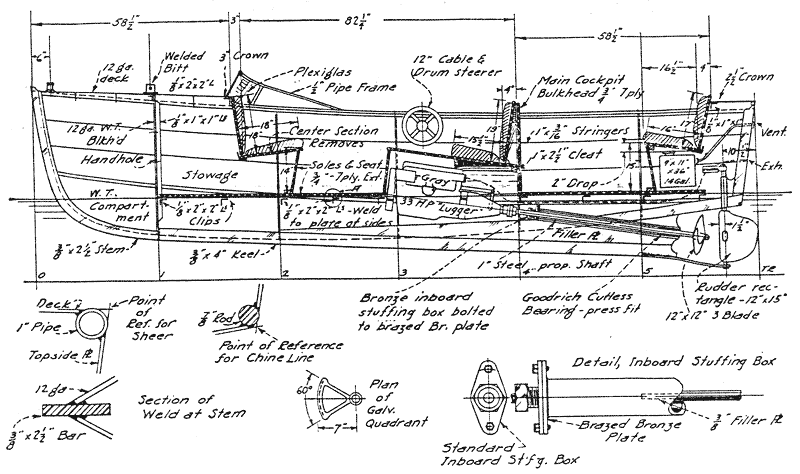 58½"
3"
82¼"
58½"
6"
12 ga.
deck
Welded
Bitt
3" Crown
⅛"x2"x2"L
Plexiglas
½" Pipe Frame
12" Cable &
Drum steerer
4"
Main Cockpit
Bulkhead ¾" 7 ply
16½"
4"
2½" Crown
12 ga. W.T.
Blkh'd
⅛"x1"x1"L
Handhole
18"
18"
Center Section
Removes
19"
15½"
1"x 3/16" Stringers
1"x2½" Cleat
16"
17"
Vent.
10½"
Exh.
Stowage
14"
Soles & Seat
¾"-7ply. Ext.
Gray
2" Drop
15"
9"x11"
x36"
14 Gal.
W.T.
Compart-
ment
⅛"x2"x2"L
Clips
⅛"x2"x2"L-Weld
to plate at sides
33 HP Lugger
Filler Pl
1½"
⅜"x2½" Stem
⅜"x4" Keel
1" Steel prop. Shaft
0
1
2
3
4
5
Bronze inboard
stuffing box bolted
to brazed Br. plate
Goodrich Cutless
Bearing-press fit
Rudder rec-
tangle-12"x15"
12"x12" 3 Blade
Deck
Point
of
Ref. for
Sheer
1" Pipe
Topside Pl
⅞" Rod
Point of Reference
for Chine Line
12 ga
⅜"x2½" Bar
Section of
Weld at Stem
60°
7"
Plan
of
Galv.
Quadrant
Detail, Inboard Stuffing Box
Standard
Inboard Stfg. Box
Brazed Bronze
Plate
⅜" Filler Pl